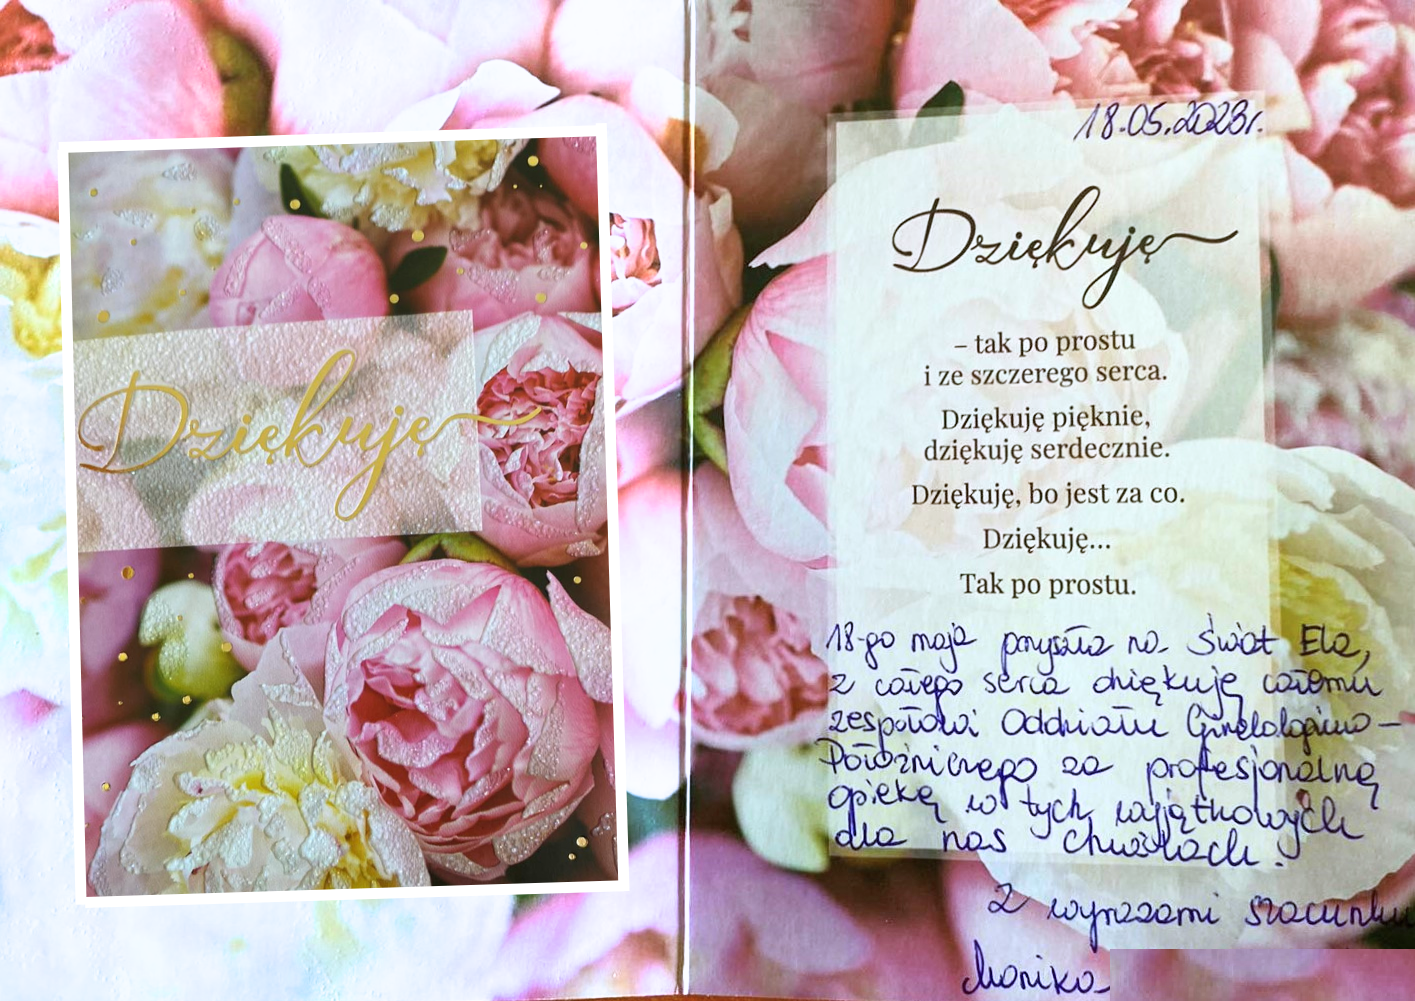 Dziękuję
18.05.2023r.
Dziękuję
– tak po prostu
i ze szczerego serca.
Dziękuję pięknie,
dziękuję serdecznie.
Dziękuję, bo jest za co.
Dziękuję...
Tak po prostu.
18-go maja przyszła na Świat Ela,
z całego serca dziękuję całemu
zespołowi Oddziału Ginekologiczno-
Położniczego za profesjonalną
opiekę w tych wyjątkowych
dla nas chwilach.
Z wyrazami szacunku
Monika